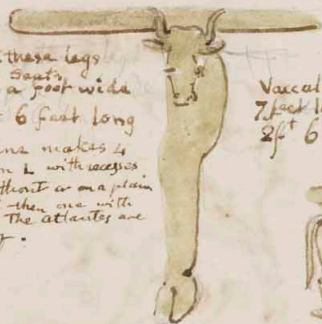 these legs
Seats
a foot wide
6 feet long
makes 4
in L with recesses
without or on a plain
then one with
The atlantes are
7 feet
2ft 6